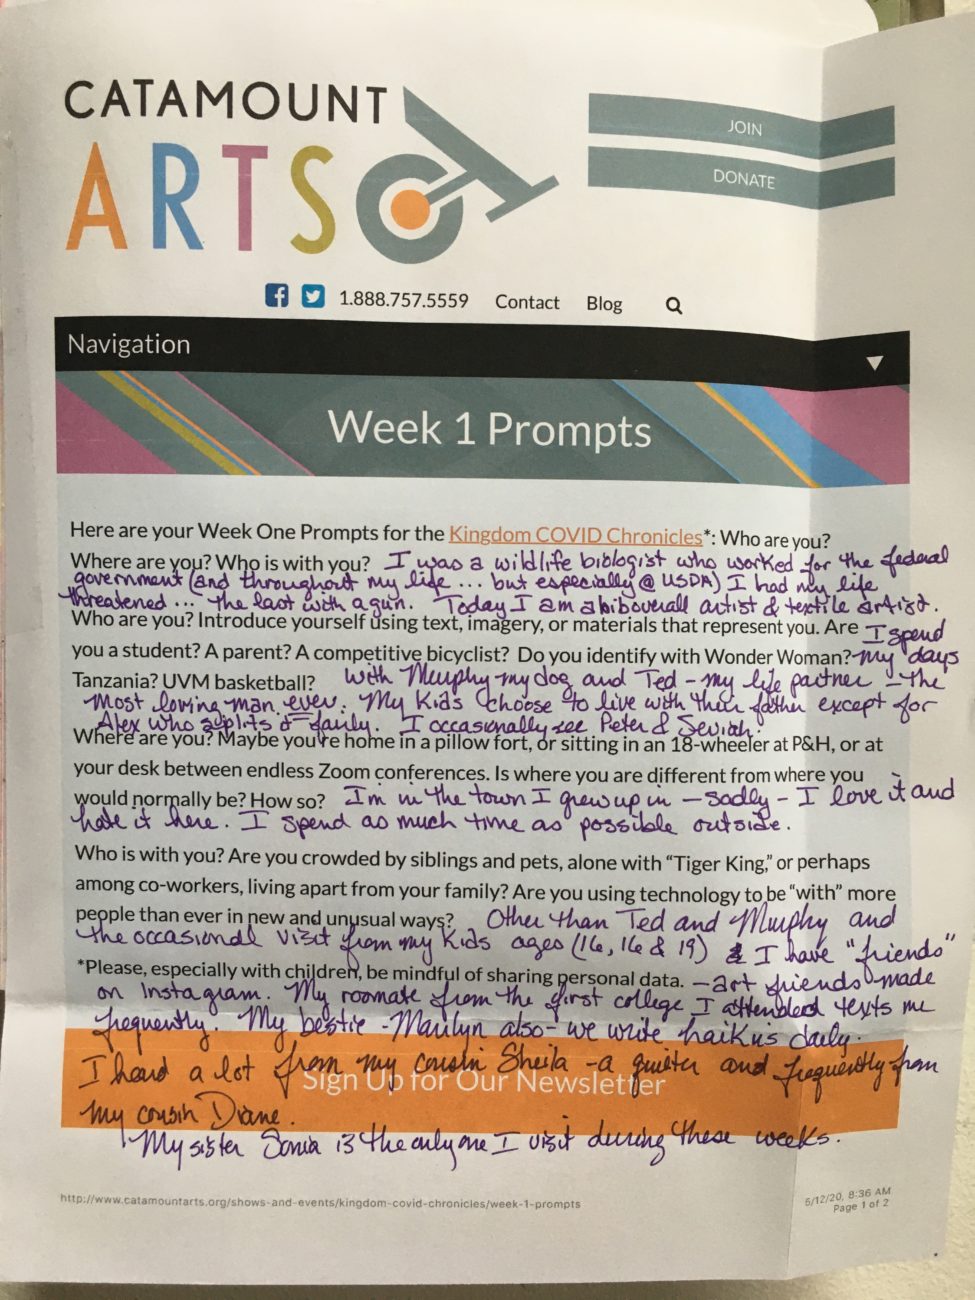 CATAMOUNT
ARTS
JOIN
DONATE
1.888.757.5559 Contact Blog
Navigation
Week 1 Prompts
Here are your Week One Prompts for the Kingdom COVID Chronicles*: Who are you?
Where are you? Who is with you? I was a wildlife biologist who worked for the federal
government (and throughout my life ... but especially @ USDA) I had my life
threatened ... the last with a gun. Today I am a artist & textile artist.
Who are you? Introduce yourself using text, imagery, or materials that represent you. Are I spend
you a student? A parent? A competitive bicyclist? Do you identify with Wonder Woman? my days
Tanzania? UVM basketball? with Murphy my dog and Ted - my life partner - the
most loving man ever. My kids choose to live with their father except for
Alex who splits it fairly. I occasionally see Peter &
Where are you? Maybe you're home in a pillow fort, or sitting in an 18-wheeler at P&H, or at
your desk between endless Zoom conferences. Is where you are different from where you
would normally be? How so? I'm in the town I grew up in - sadly - I love it and
hate it here. I spend as much time as possible outside.
Who is with you? Are you crowded by siblings and pets, alone with "Tiger King," or perhaps
among co-workers, living apart from your family? Are you using technology to be "with" more
people than ever in new and unusual ways? Other than Ted and Murphy and
the occasional visit from my kids ages (16, 16 & 19) I have "friends"
*Please, especially with children, be mindful of sharing personal data. - art friends made
on Instagram. My roomate from the first college I attended texts me
frequently. My bestie - Marilyn also - we write haiku's daily.
I heard a lot from my cousin Sheila - a quilter and frequently from
Sign Up for Our Newsletter
my cousin Diane.
My sister Sonia is the only one I visit during these weeks.
http://www.catamountarts.org/shows-and-events/kingdom-covid-chronicles/week-1-prompts
5/12/20, 8:36 AM
Page 1 of 2